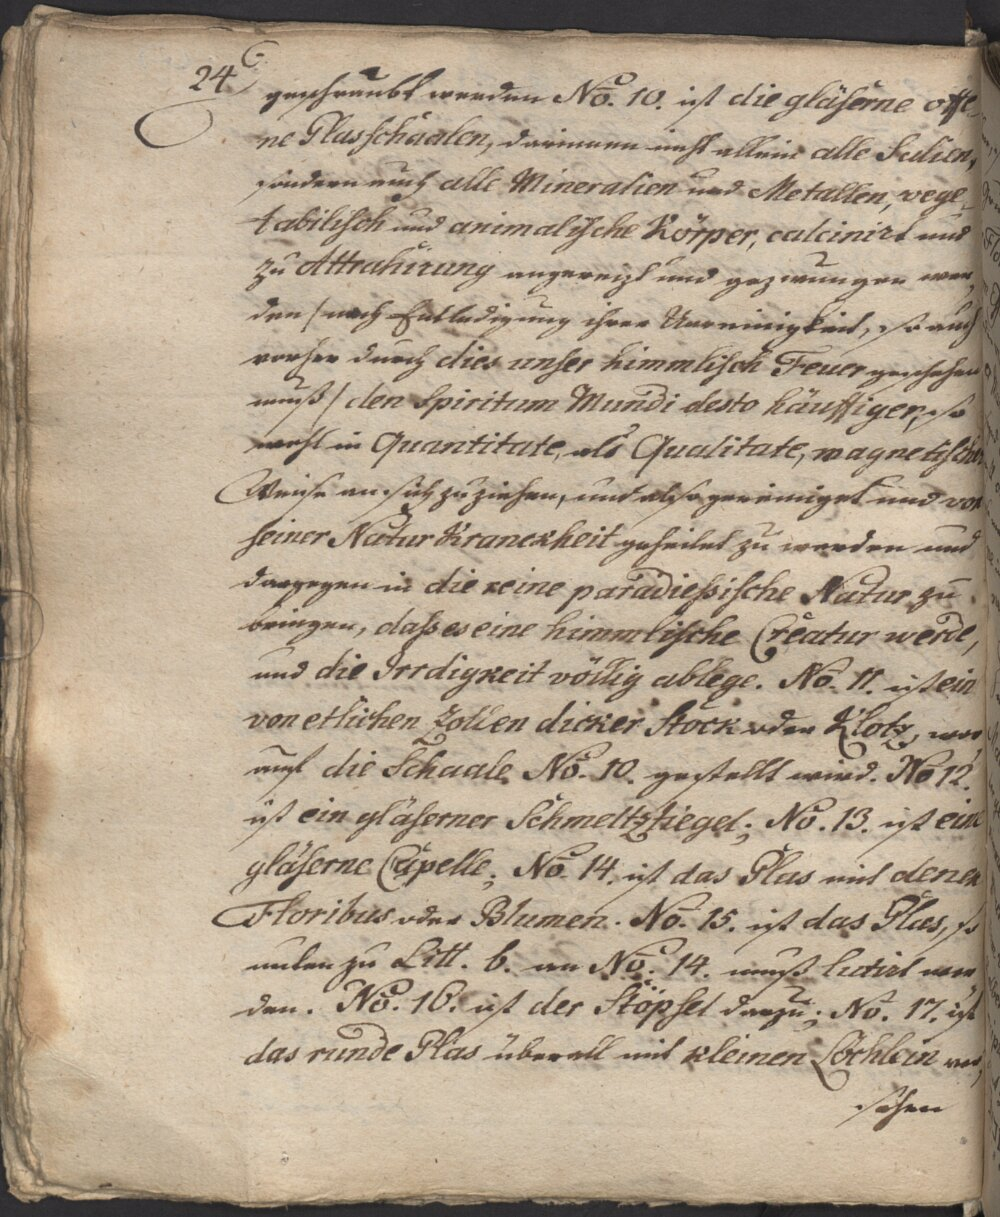 24
geschraubt werden No. 10. ist die gläserne offe-
ne Glasschaalen, darinnen nicht allein alle Salien,
sondern auch alle Mineralien und Metallen, vege-
tabilisch und animalische Körper, calcinirt und
zu Attrahirung angereizt und gezwungen wer-
den / nach Entledigung ihrer Unreinigkeit, so auch
vorher durch dies unser himmlisch Feuer geschehen
muß / den Spiritum Mundi desto häuffiger, so
wohl in Quantitate, als Qualitate, magnetischer
Weise an sich zu ziehen, und also gereiniget und von
seiner Natur Kranckheit geheilet zu werden und
dargegen in die reine paradiesische Natur zu
bringen, dass es eine himmlische Creatur werde,
und die Irrdigkeit völlig ablege. No. 11. ist ein
von etlichen Zollen dicker Stock oder Klotz, wor
auf die Schaale No. 10. gestellt wird. No 12.
ist ein gläserner Schmeltztiegel; No. 13. ist eine
gläserne Capelle; No. 14. ist das Glas mit denen
Floribus oder Blumen. No. 15. ist das Glas, so
unten zu Litt. b. an No. 14. muß lutirt wer
den. No. 16. ist der Stöpsel dazu; No. 17. ist
das runde Glas überall mit kleinen Löchlein ver-
sehen